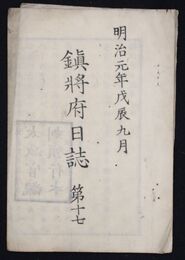 明治元年戊辰九月
鎮將府日誌 第十七